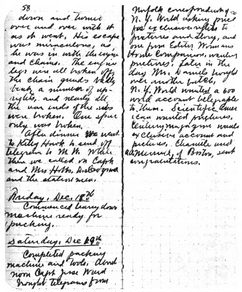 58
down and turned
over and over with it
as it went. His escape
was miraculous, as
he was in with the engine
and chains. The engine
legs were all broken off,
the chain guides badly
bent, a number of up-
rights, and nearly all
the rear ends of the ribs
were broken. One spar
only was broken.
After dinner we went
to Kitty Hawk to send off
telegram to M.W. While
there we called on Capt.
and Mrs Hobbs, Dr. Cogswell
and the station men.
Friday, Dec. 18th
Commenced tearing down
machine ready for
packing.
Saturday, Dec 19th
Completed packing
machine and tools. About
noon Capt. Jesse Ward
brought telegrams from
Norfolk correspondent of
N.Y. World asking price
for exclusive rights to
pictures and story, and
one from Cathy
Woman's Home Companion, wanting
pictures; later in the
day Mr. Daniels brought
over another batch,
N.Y. World wanted a 600
word account telegraphed
to them. Scientific Amer-
ican wanted pictures,
Century magazine wanted
exclusive account and
pictures, Chanute and
A.A. Merrill, of Boston, sent
congratulations.